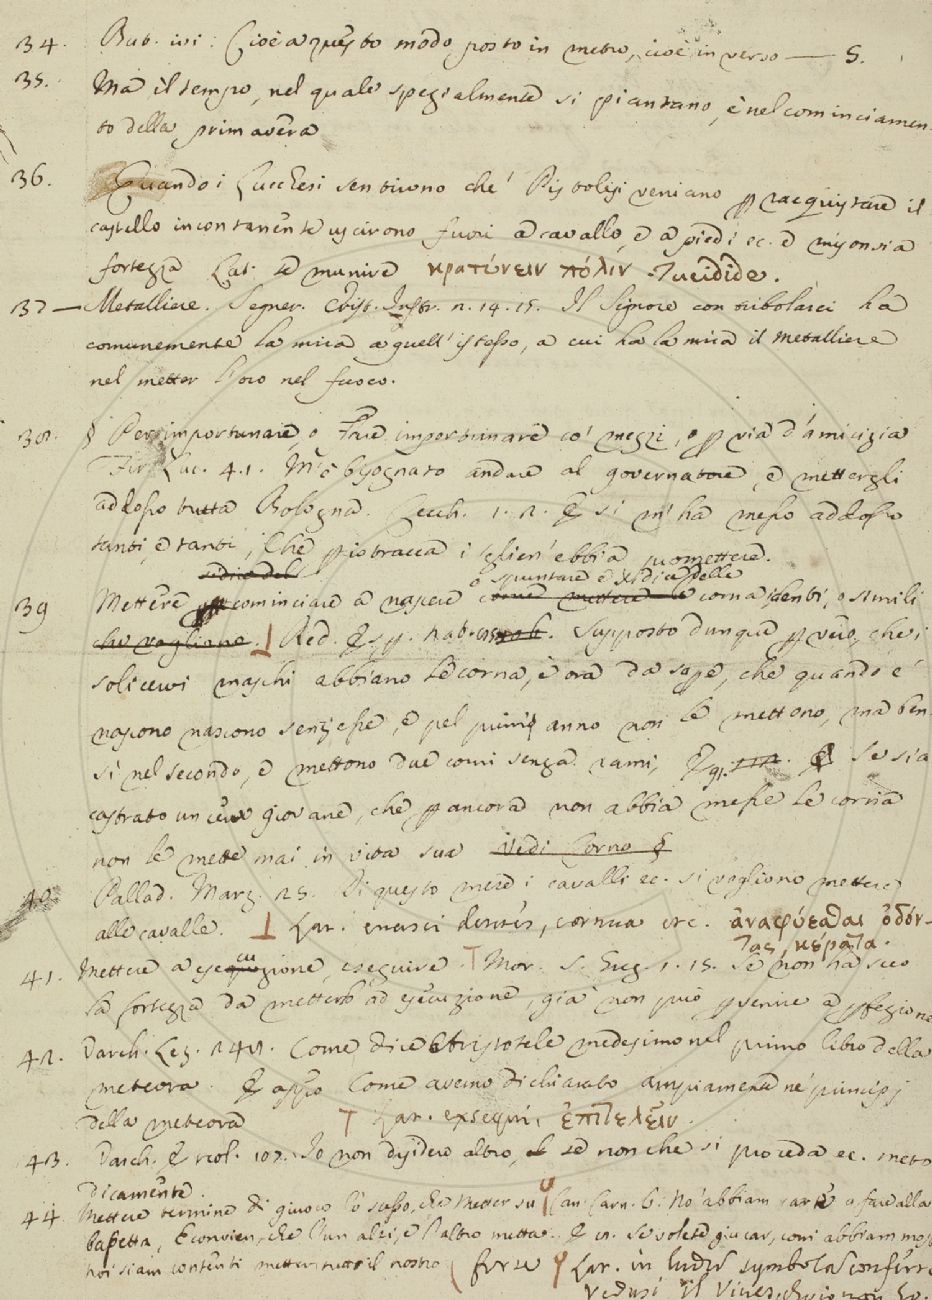 34. But. ivi: Cioè a questo modo posto in metro, cioè in verso — S.
35. Ma il tempo, nel quale spezialmente si piantano, è nel cominciamen-
to della primavera
36. Quando i Lucchesi sentirono che' Pistolesi veniano p racquistare il
castello incontanente uscirono fuori a cavallo, e a piedi ec. e
fortezza Lat. munire κρατύνειν πόλιν Tucidide.
37 — Metalliere. Segner. Crist. Instr. n. 14. 15. Il Signore con tribolarci ha
comunemente la mira a quell'istesso, a cui ha la mira il Metalliere
nel metter l'oro nel fuoco.
38. § Per importunare, o Fare importunare co' mezzi, o p via d'amicizia
Fir. Luc. 4. 1. M'è bisognato andare al governatore, e mettergli
addosso tutta Bologna. Cecch. 1. 2. E si m'ha messo addosso
tanti, e tanti, Che i glien' ebbi a promettere.
o spuntare e delle
39 Mettere cominciare a nascere corna, denti, o simili
che vogliano. Red. Esp. nat. Supposto dunque p vero, che i
solieri maschi abbiano le corna, è ora da sape, che quando e'
nascono nascono senz'esse, e pel primo anno non le mettono, ma ben-
si nel secondo, e mettono due corni senza rami, E 91. Se sia
castrato un giovane, che p ancora non abbia messe le corna
non le mette mai in vita sua Vedi Corno §
40. Pallad. Marz. 25. Di questo mese i cavalli ec. si vogliono mettere
alle cavalle. Lat. enasci dentes, cornua etc. ἀναφύεσθαι ὀδόν-
τας, κέρατα.
41. Mettere a esecuzione, eseguire. Mor. S. Greg. 1. 15. Se non ha seco
la fortezza da metterlo ad esecuzione, già non può pvenire a pfezione
42. Varch. Lez. Come dice Aristotele medesimo nel primo libro della
meteora. E appo Come avemo dichiarato ampiamente ne' principj
della meteora Lat. exsequi, ἐπιτελεῖν.
43. Varch. Ercol. 107. Io non desidero altro, se non che si proceda ec. meto
dicamente.
44 Mettere termine di giuoco lo stesso, che Metter su Can. Carn. 6. Noi abbiam carte a fare alla
bassetta, E convien, che l'un alzi, e l'altro metta. E Se volete giucar, come abbiam mos
noi siam contenti metter tutto il nostro Lat. in ludis symbola conferre